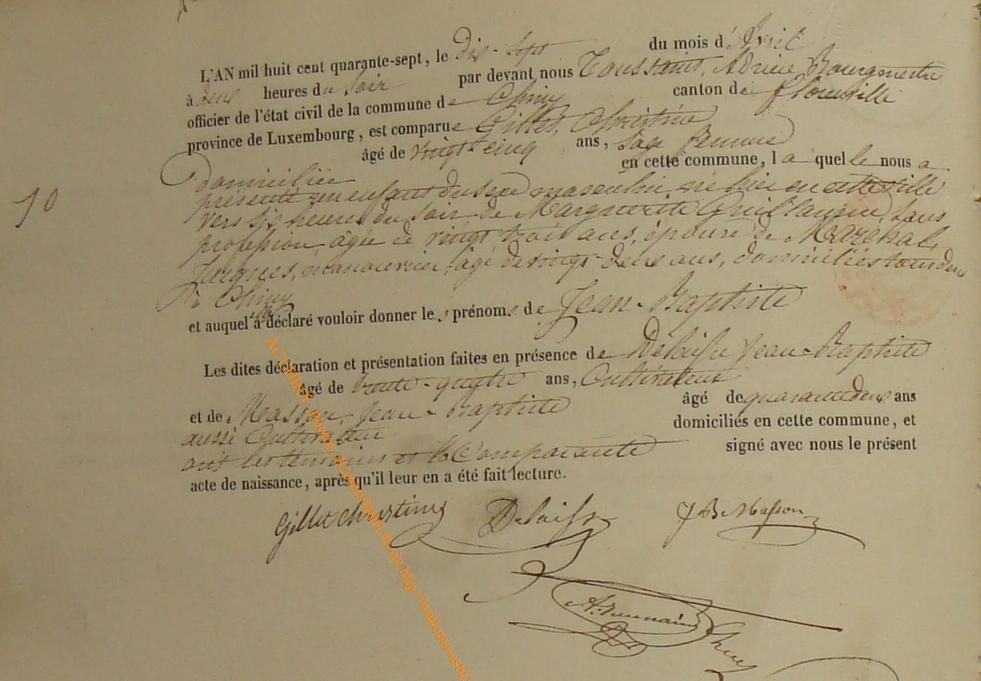 L'AN mil huit cent quarante-sept, le dix-sept du mois d'Avril
à deux heures du soir par devant nous Toussaint, Adrien Bourgmestre
officier de l'état civil de la commune de Chiny canton de Florenville
province de Luxembourg, est comparue Gillet, Christine
âgé de vingt-cinq ans, sage femme
domiciliée en cette commune, laquelle nous a
présenté un enfant du sexe masculin, né hier en cette ville
vers six heures du soir de Marguerite Guillaume, sans
profession âgée de vingt trois ans, épouse de Maréchal,
Jacques, manouvrier, âgé de vingt-deux ans, domiciliés tous deux
à Chiny
et auquel a déclaré vouloir donner les prénoms de Jean-Baptiste
Les dites déclaration et présentation faites en présence de Delaisse Jean-Baptiste
âgé de trente-quatre ans, Cultivateur
et de Masson, Jean-Baptiste âgé de quarante deux ans
aussi Cultivateur domiciliés en cette commune, et
ont les témoins et la Comparante signé avec nous le présent
acte de naissance, après qu'il leur en a été fait lecture.
10
Gillet Christine Delaisse J B Masson